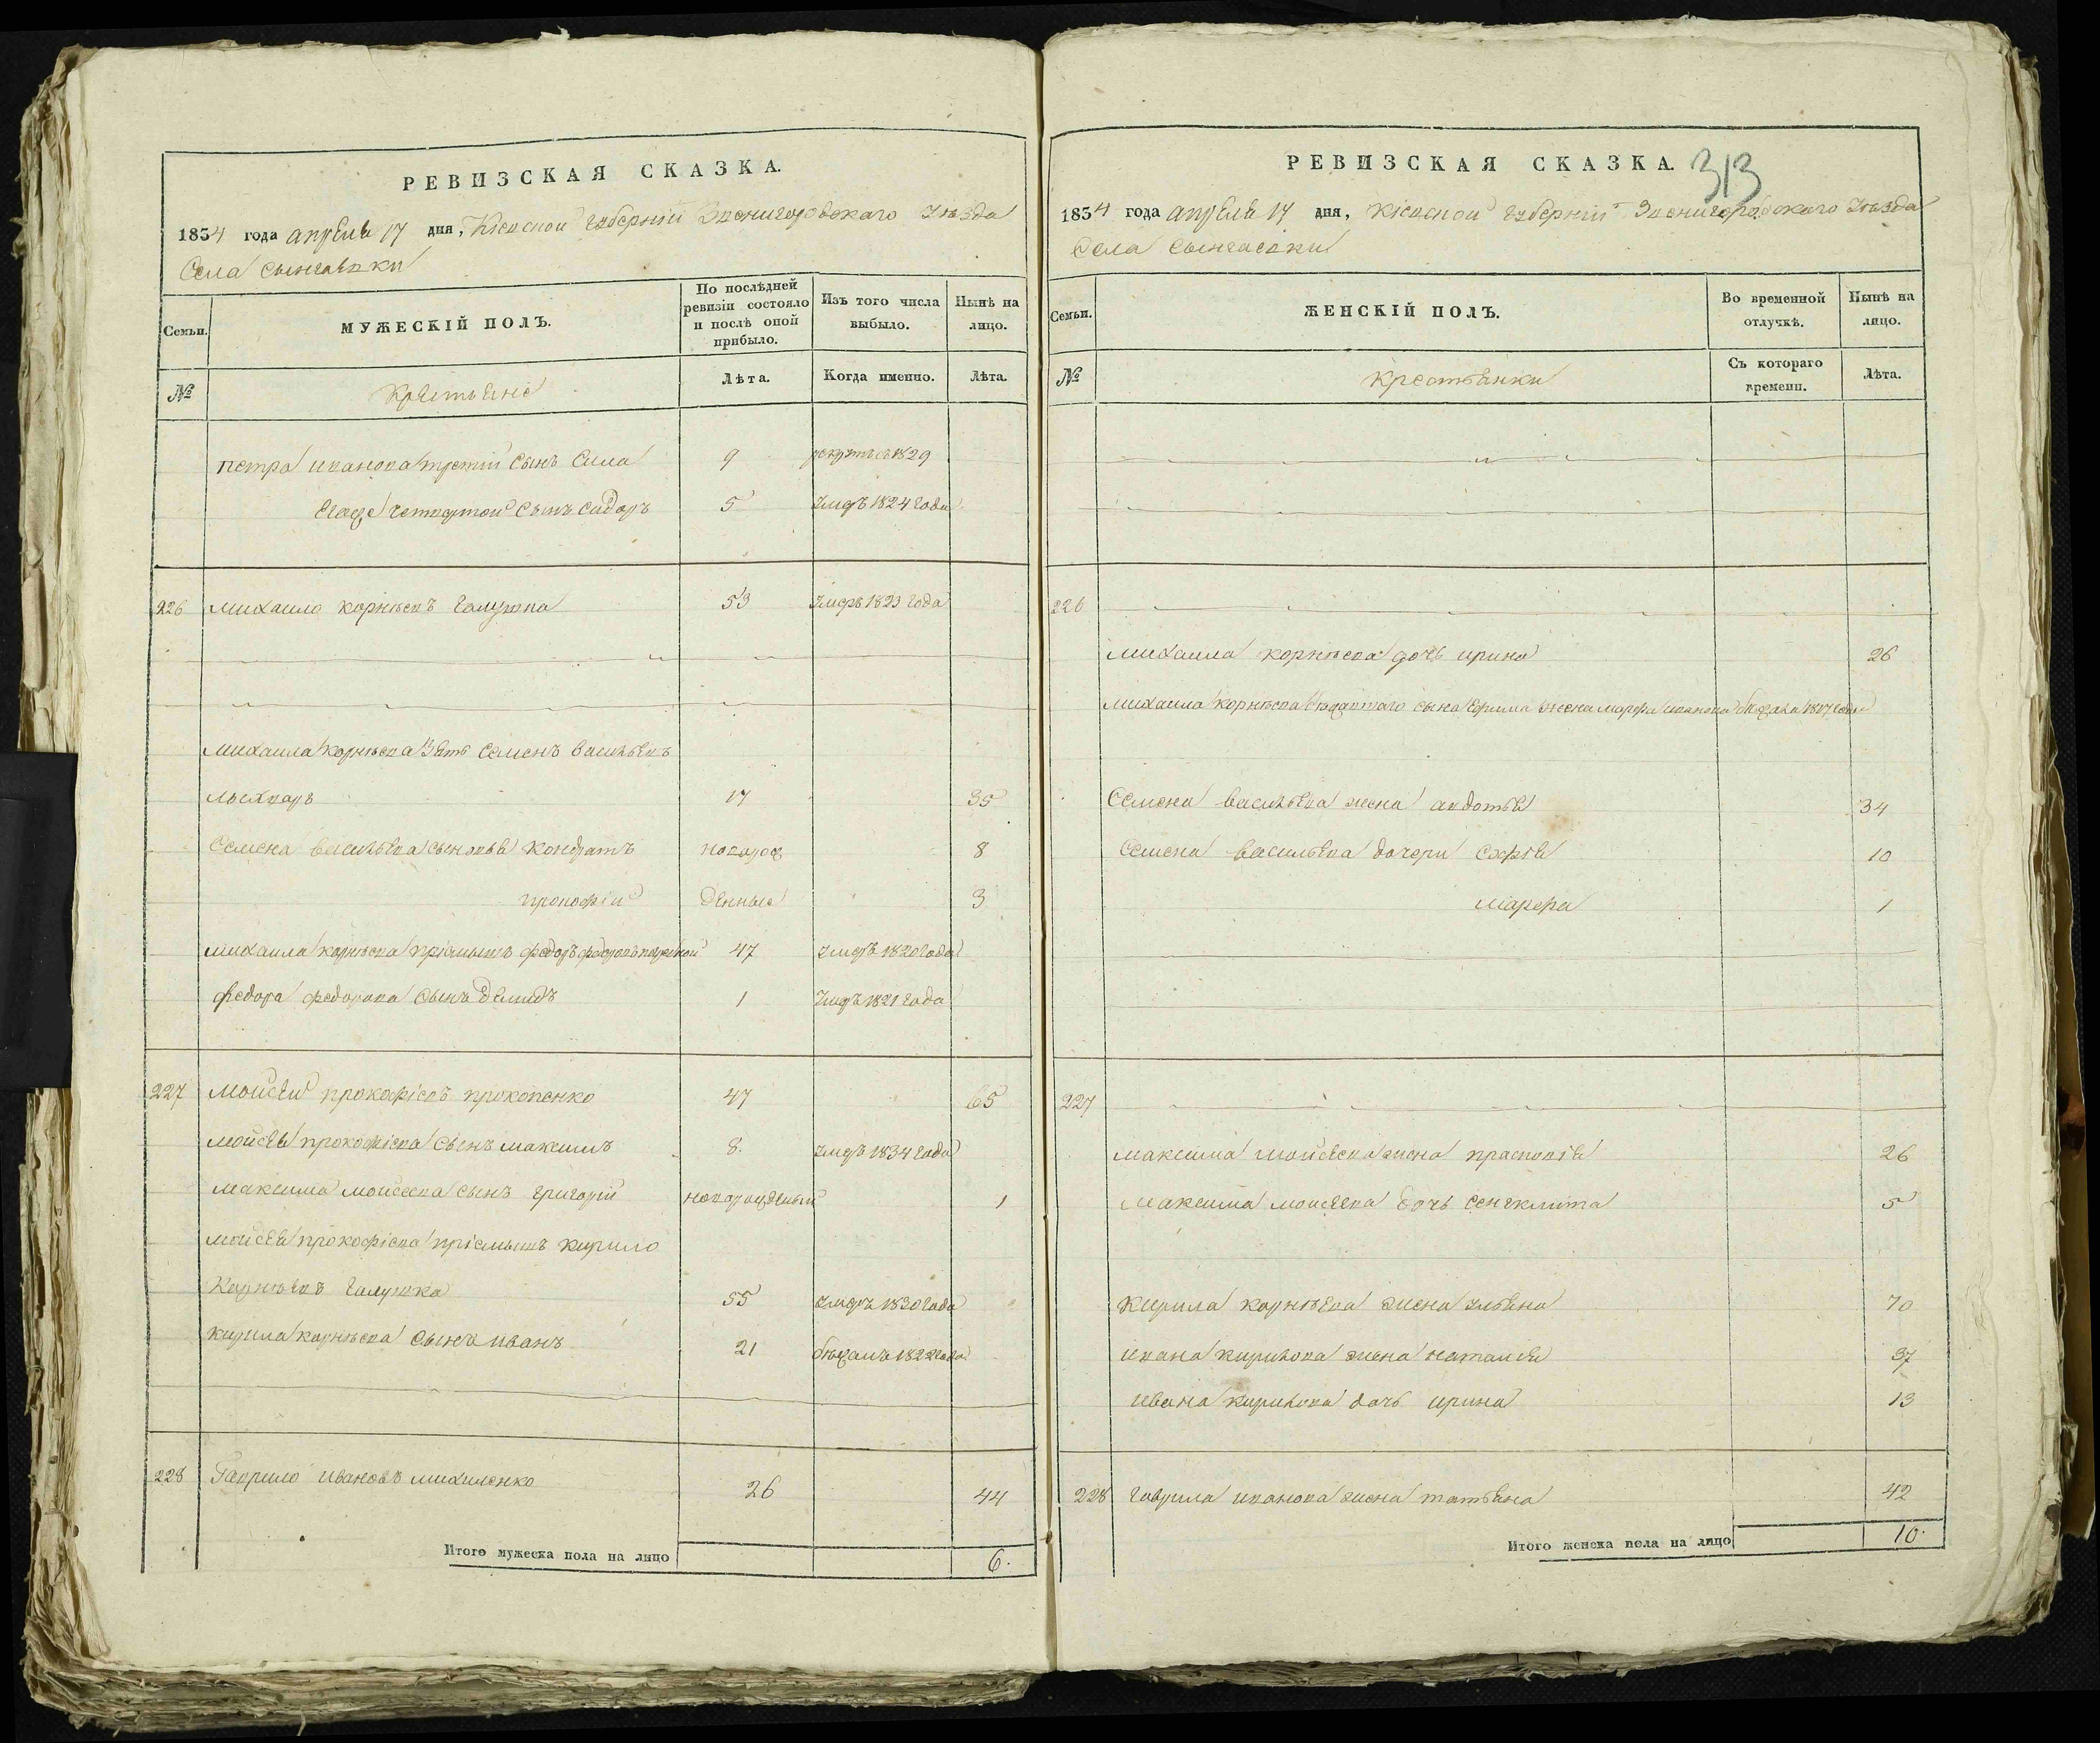 РЕВИЗСКАЯ СКАЗКА.
1834 года апреля 17 дня, Кіевской губерніи Звенигородского уѣзда
Села
Семьи.
МУЖЕСКІЙ ПОЛЪ.
По послѣдней ревизіи состояло и послѣ оной прибыло.
Изъ того числа выбыло.
Нынѣ на лицо.
№
Крестьяне
Лѣта.
Когда именно.
Лѣта.
петра иванова третій сынъ Сила 9 1829
Егоже четвертой сынъ Сидоръ 5 умеръ 1824 года
226 Михаило корнѣевъ Галушка 53 умеръ 1823 года
михаила корнѣева зять Семенъ васильевъ
17 35
Семена васильева сыновья Кондратъ новорож 8
прокофій денные 3
михаила корнѣева пріемышъ федоръ федоровъ 47 умеръ 1820 года
федора федорова сынъ демидъ 1 умеръ 1821 года
227 Мойсей прокофіевъ прокопенко 47 65
мойсея прокофіева сынъ максимъ 8. умеръ 1834 года
максима мойсеева сынъ григорій новорожденый 1
мойсея прокофіева пріемышъ кирило
Корнѣевъ Галушка 55 умеръ 1830 года
кирила корнѣева сынъ иванъ 21 бѣжалъ 1822 года
228 Гаврило Ивановъ михиленко 26 44
Итого мужеска пола на лицо 6.
РЕВИЗСКАЯ СКАЗКА. 313
1834 года апреля 17 дня, Кіевской губерніи Звенигородского уѣзда
Села
Семьи.
ЖЕНСКІЙ ПОЛЪ.
Во временной отлучкѣ.
Нынѣ на лицо.
№
Крестьянки
Съ котораго времени.
Лѣта.
226
михаила корнѣева дочь ирина 26
михаила корнѣева сына Ефима жена марфа иванова бѣжала 1817 года
Семена васильева жена авдотья 34
Семена васильева дочери Софія 10
марфа 1
227
максима мойсеева жена прасковія 26
Максима мойсеева дочь Сенклита 5
Кирила корнѣева жена ульяна 70
ивана кирилова жена наталія 37
ивана кирилова дочь ирина 13
228 Гаврила иванова жена татьяна 42
Итого женска пола на лицо 10.